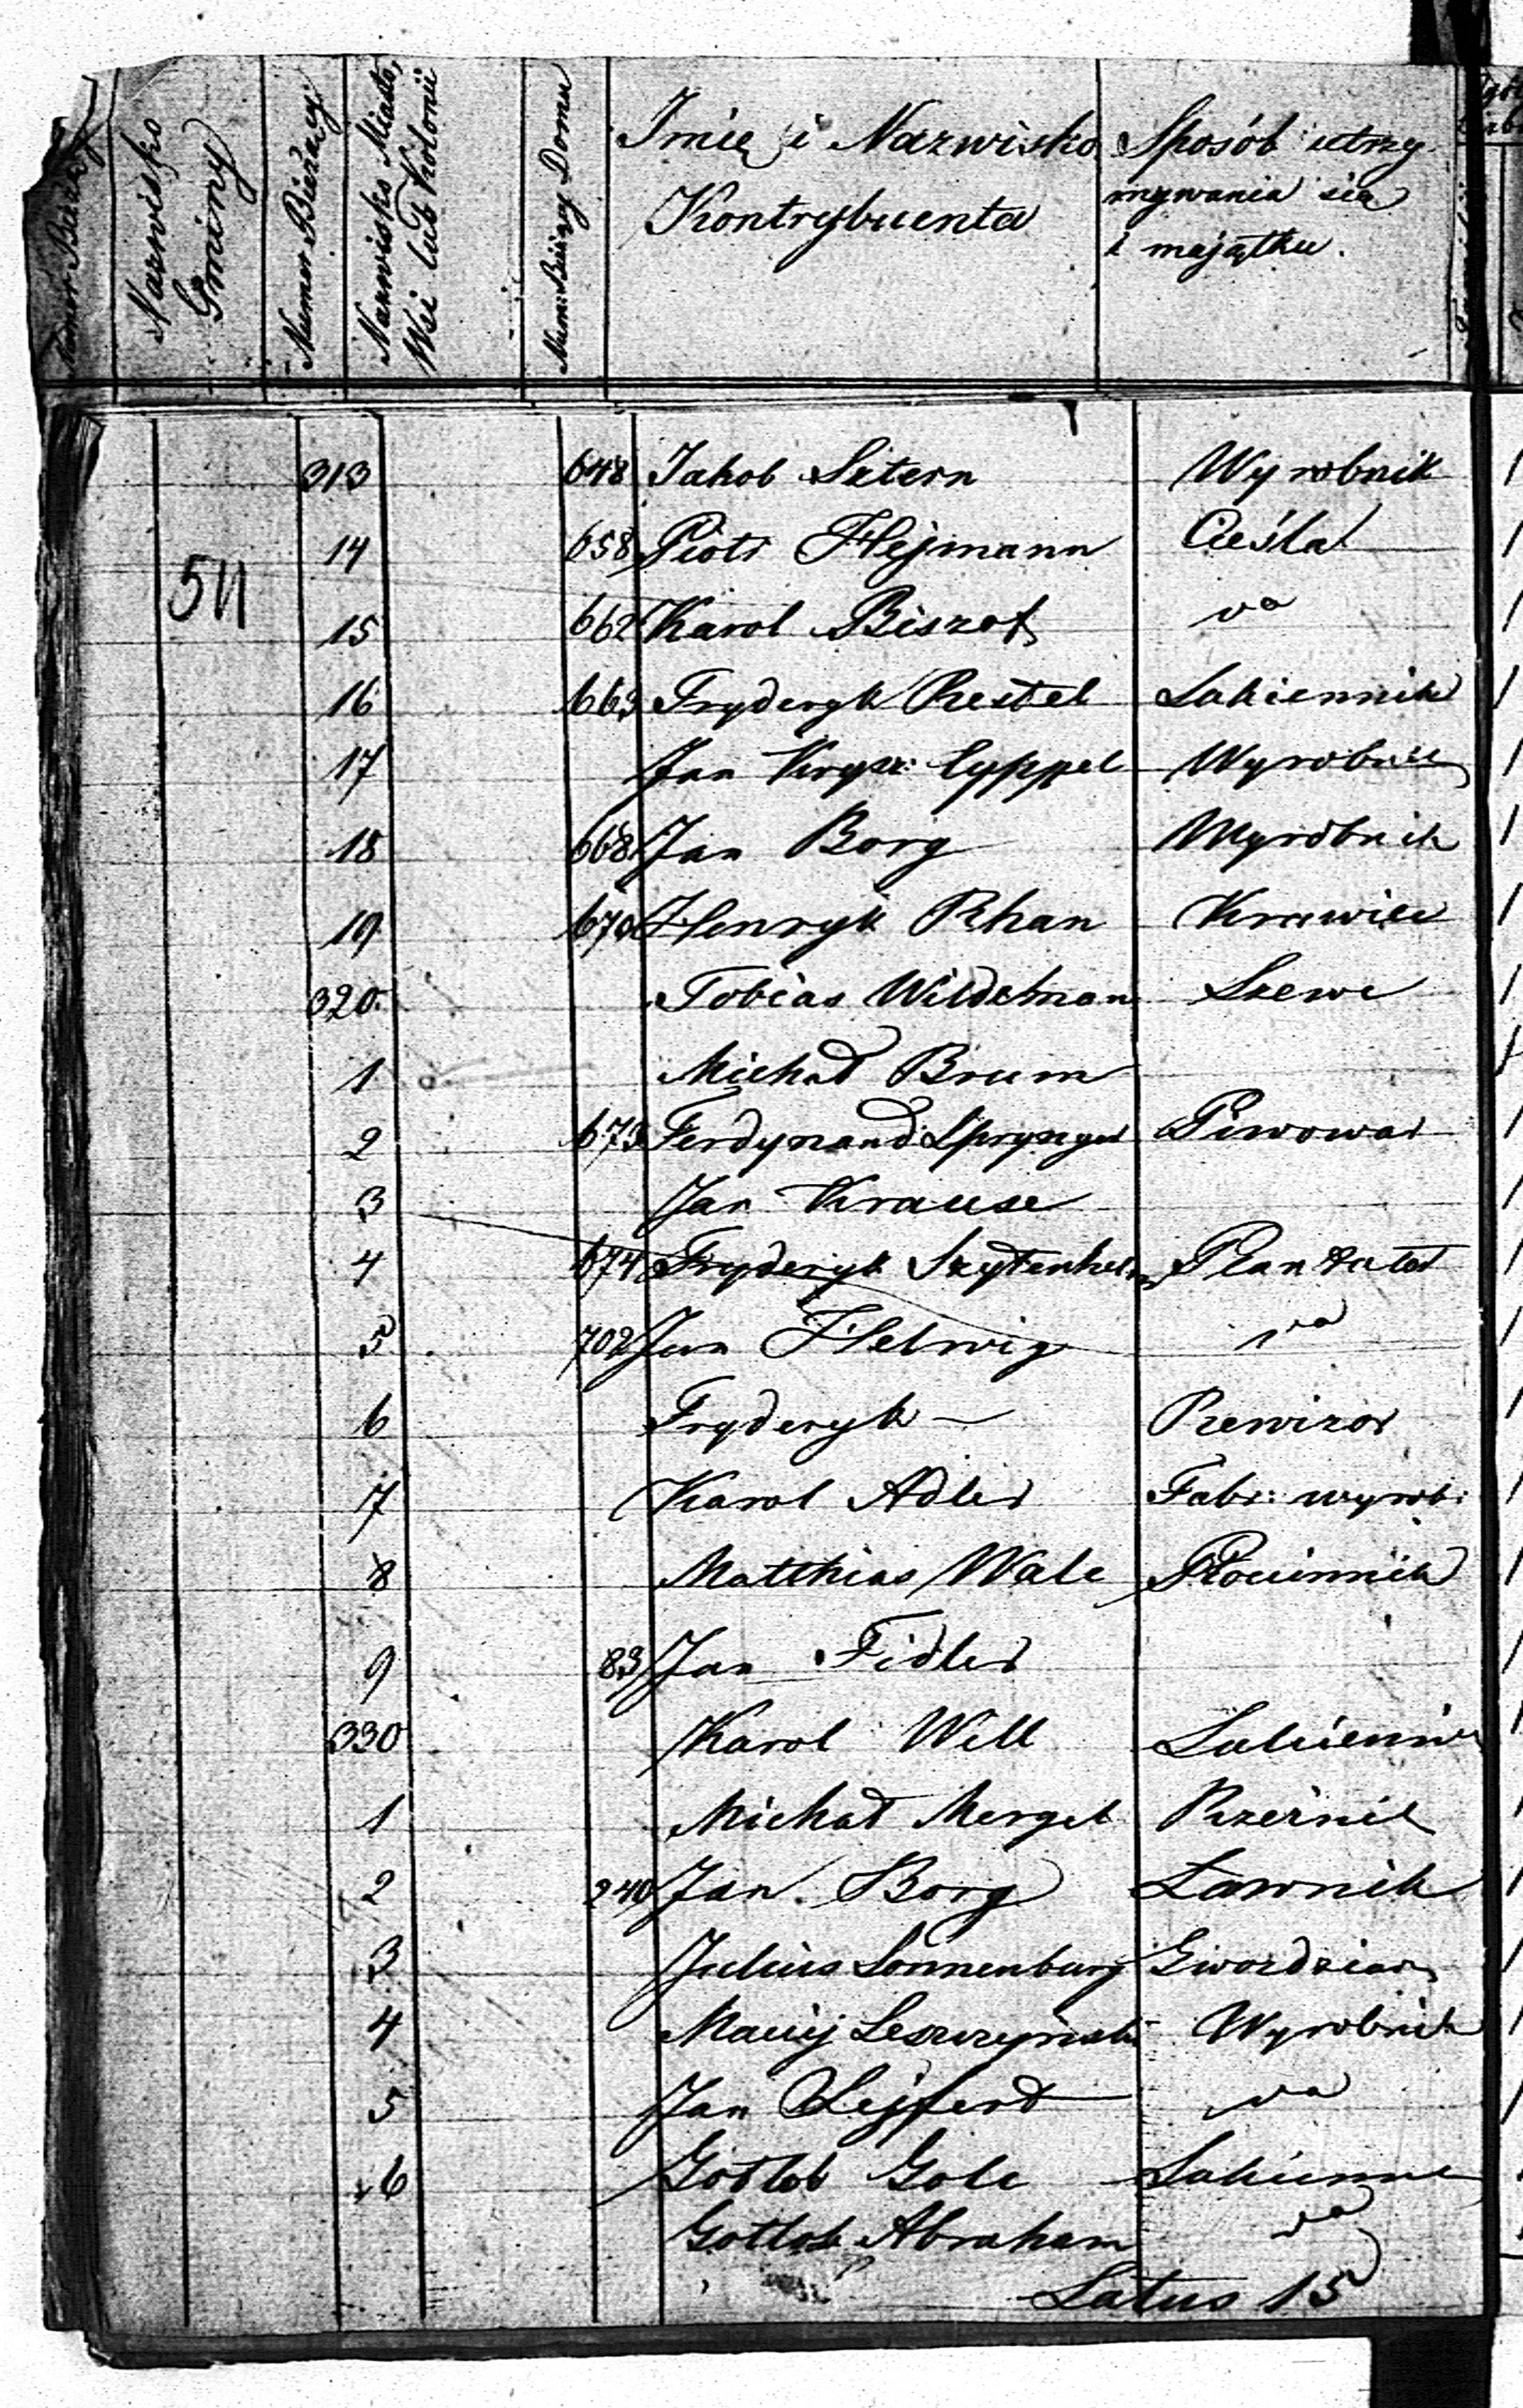 Numer Bieżący
Nazwisko Gminy
Numer Bieżący
Nazwisko Miasta, Wsi lub Kolonii
Num: Bieżący Domu
Imie i Nazwisko Kontrybuenta
Sposób utrzymywania sie i majątku.
511
313 648 Jakob Sztern Wyrobnik
14 658 Piotr Hejmann Cieśla
15 662 Karol Biszof va
16 663 Fryderyk Restel Sukiennik
17 Jan Krysz: Cyppel Wyrobnik
18 668 Jan Borg Wyrobnik
19 670 Henryk Rhan Krawiec
320 Tobias Wildeman Szewc
1 Michał Brum
2 673 Ferdynand Piwowar
3 Jan Krause
4 674 Fryderyk Szytenhelm
5 702 Jan Helwig va
6 Fryderyk — Rewizor
7 Karol Adler Fabr: wyrob:
8 Matthias Wale Płóciennik
9 83 Jan Fidler
330 Karol Will Sukiennik
1 Michał Mergel Rzeźnik
2 240 Jan Borg Ławnik
3 Julius Sonnenburg Gwozdziarz
4 Maciej Leszczynski Wyrobnik
5 Jan Zejfert va
6 Gotlob Gole Sukienni
Gotlob Abraham va
Latus 15